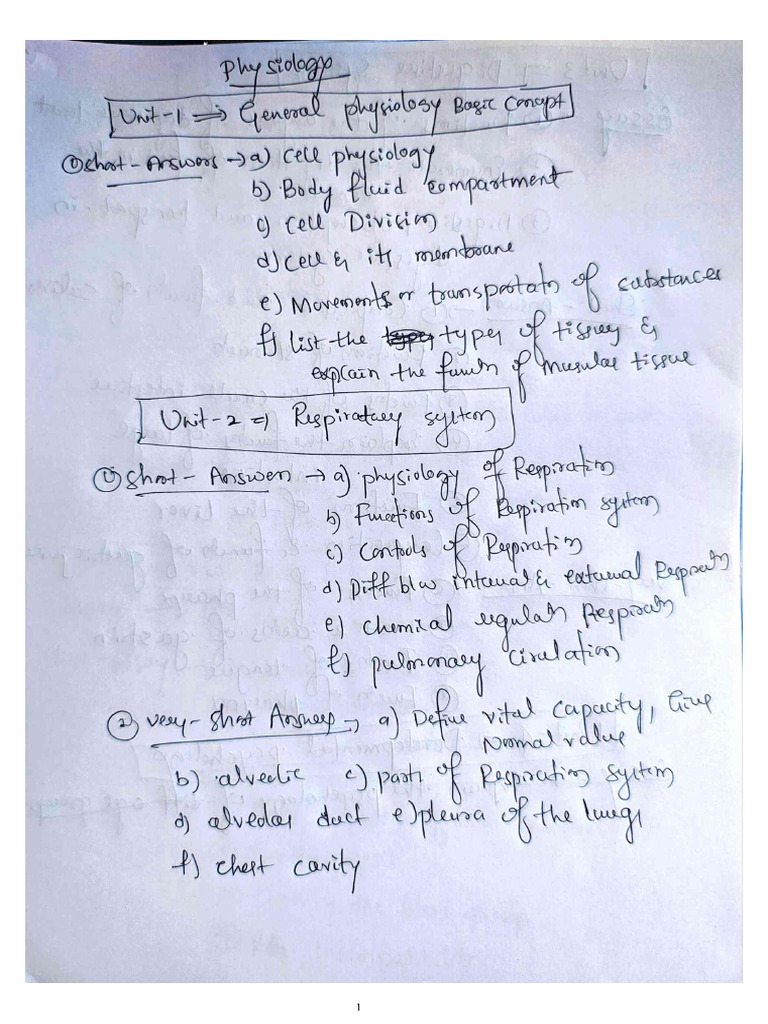 Physiology
Unit-1 ⇒ General physiology Basic Concept
① Short-Answers → a) Cell physiology
b) Body fluid compartment
c) Cell Division
d) Cell & its membrane
e) Movements or transportatn of substances
f) List the types of tissues &
explain the funcn of muscular tissue
Unit-2 ⇒ Respiratory system
① Short-Answers → a) physiology of Respiration
b) Functions of Respiration system
c) Controls of Respiration
d) Diff b/w internal & external Respiratn
e) Chemical regulatn Respiratn
f) pulmonary circulation
② Very-Short Answers → a) Define vital capacity, Give
Normal value
b) alveolic c) parts of Respiration system
d) alveolar duct e) pleura of the lungs
f) chest cavity
1